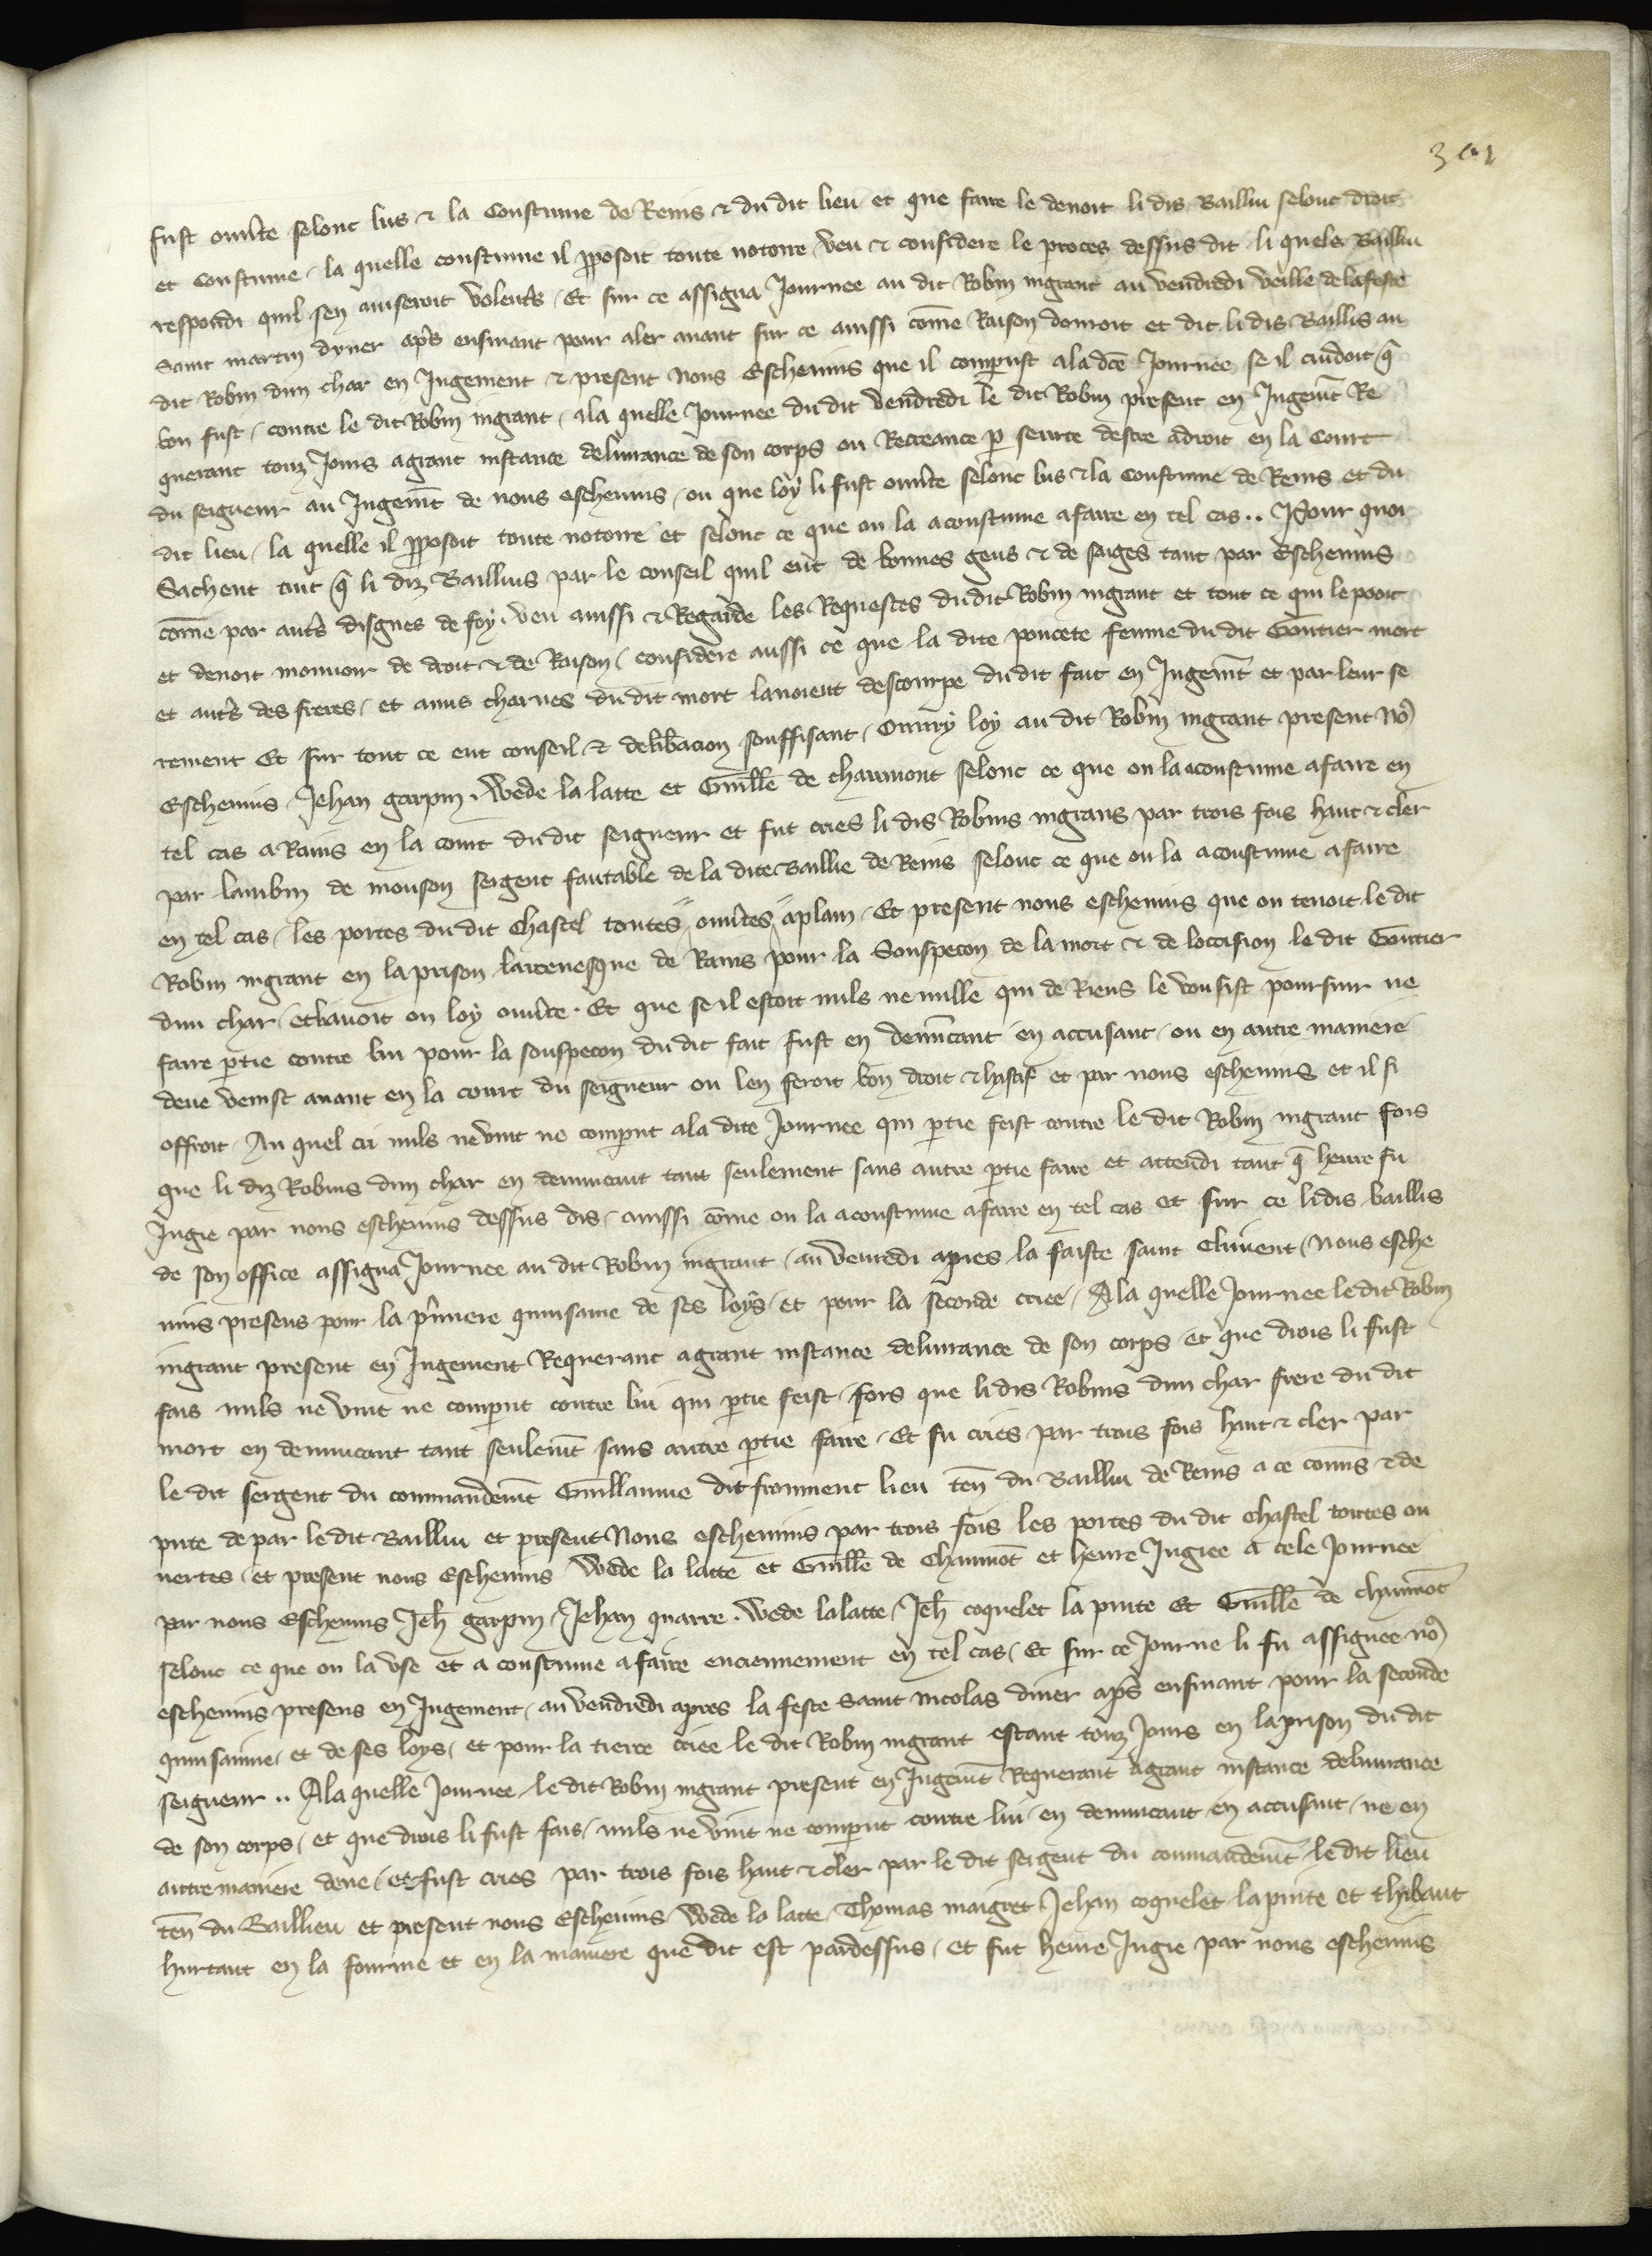 301
fust ouverte selonc lus & la Coustume de Reins & du dit lieu et que faire le devoit li dis Bailliu selonc droit
et Coustume / la quelle coustume il pposoit toute notoire / veu & considere le proces dessus dit li queles Bailliu
respondi quil sen aviseroit volent's / Et sur ce assigna Journee au dit Robin ingrant au vendredi veille de la feste
saint martin dyver ap's ensivant pour aler avant sur ce aussi come Raison donroit et dit li dis Baillis au
dit Robin dun char en Jugement & present nous Eschevins que il comparust a la dce Journee se il cuidoit q
bon fust / contre le dit Robin ingrant / a la quelle Journee du dit vendredi le dit Robin present en Jugemt Re
querant touz Jours a grant instance delivrance de son corps ou Recreance p seurte destre a droit en la Court
du seigneur au Jugemt de nous eschevins / ou que loy li fust ouverte selonc lus & la Coustume de Reins et du
dit lieu / la quelle il pposoit toute notoire et selonc ce que on la acoustume a faire en tel cas .. Pour quoi
Sachent tuit q li diz Baillius par le conseil quil eut de bonnes gens & de saiges tant par Eschevins
come par aut's disgnes de foy . veu aussi & Regarde les Requestes du dit Robin ingrant et tout ce qui le pooit
et devoit mouvoir de droit & de Raison / considere aussi ce que la dite poncete femme du dit Gontier mort
et aut's des freres / et amis charnes du dit mort lavoient descourpe du dit fait en Jugemt et par leur se
rement Et sur tout ce eut conseil & delibacion souffisant / Ouvry loy au dit Robin ingrant present no
Eschevins Jehan garpin . Wede la latte et Guille de chaumont selonc ce que on la acoustume a faire en
tel cas a Rains en la court du dit seigneur et fut cries li dis Robins ingrans par trois fois haut & cler
par lambin de mouson sergent fautable de la dite Baillie de Reins selonc ce que on la acoustume a faire
en tel cas / les portes du dit Chastel toutes ouvtes aplain / Et present nous eschevins que on tenoit le dit
Robin ingrant en la prison larcevesque de Rains pour la Souspecon de la mort & de loccision le dit Gontier
dun char / et lavoit on loy ouvte . Et que se il estoit nuls ne nulle qui de Riens le vousist poursuir ne
faire ptie contre lui pour la souspecon du dit fait fust en denuncant en accusant / ou en autre maniere
deue venist avant en la court du seigneur on len feroit bon droit & hastif et par nous eschevins et il si
offroit / Au quel cri nuls ne vint ne comput a la dite Journee qui ptie feist contre le dit Robin ingrant fors
que li diz Robins dun char en denuncant tant seulement sans autre ptie faire et attendi tant q heure fu
Jugie par nous eschevins dessus dis / aussi come on la acoustume a faire en tel cas et sur ce li dis baillis
de son office assigna Journee au dit Robin ingrant / au venredi apres la faiste saint Clement / nous esche
vins presens pour la p'miere quinsaine de ses loys / et pour la seconde criee / A la quelle Journee le dit Robin
ingrant present en Jugement Requerant a grant instance delivrance de son corps / et que drois li fust
fais nuls ne vint ne comput contre lui qui ptie feist / fors que li dis Robins dun char frere du dit
mort en denuncant tant seulemt sans autre ptie faire / Et fu cries par trois fois haut & cler par
le dit sergent du commandemt Guillaume dit froment lieu ten du Bailliu de Reins a ce comis & de
pute de par le dit Bailliu et present Nous eschevins par trois fois les portes du dit chastel toutes ou
vertes / et present nous Eschevins Wede la latte et Guille de Chaumot et heure Jugiee a cele Journee
par nous Eschevins Jeh garpin / Jehan quarre . Wede la latte / Jeh coquelet la pinte et Guille de chaumot
selonc ce que on la use et a coustume a faire enciennement en tel cas / Et sur ce Journe li fu assignee no
eschevins presens en Jugement / au vendredi apres la feste saint nicolas diver ap's ensivant pour la seconde
quinsainne / et de ses loys / et pour la tierce criee le dit Robin ingrant estant touz Jours en la prison du dit
seigneur .. A la quelle Journee le dit Robin ingrant present en Jugemt Requerant a grant instance delivrance
de son corps / et que drois li fust fais / nuls ne vint ne comput contre lui en denuncant en accusant / ne en
autre maniere deue / et fust cries par trois fois haut & cler par le dit sergent du commandemt le dit lieu
ten du Baillieu et present nous Eschevins / Wede la latte / Thomas maigret Jehan coquelet la pinte et thibaut
hurtaut en la fourme et en la maniere que dit est pardessus / et fut heure Jugie par nous eschevins